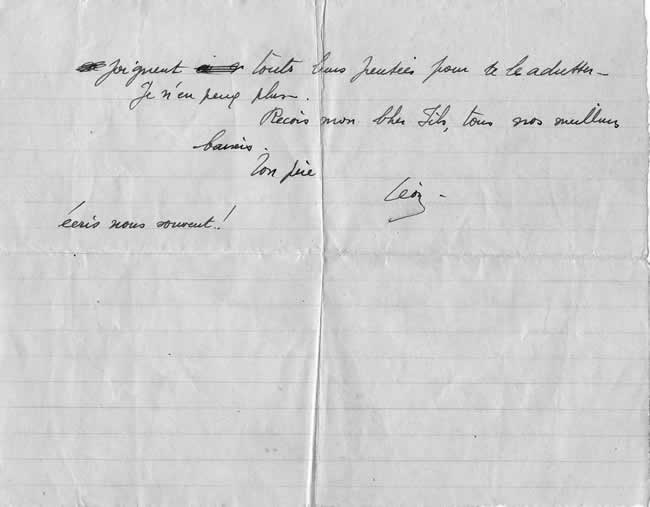 joignent toute leurs pensées pour te le
Je n'en peux plus.
Reçois mon cher Fils, tous nos meilleurs
baisers.
Ton père
Léon
écris nous souvent!!